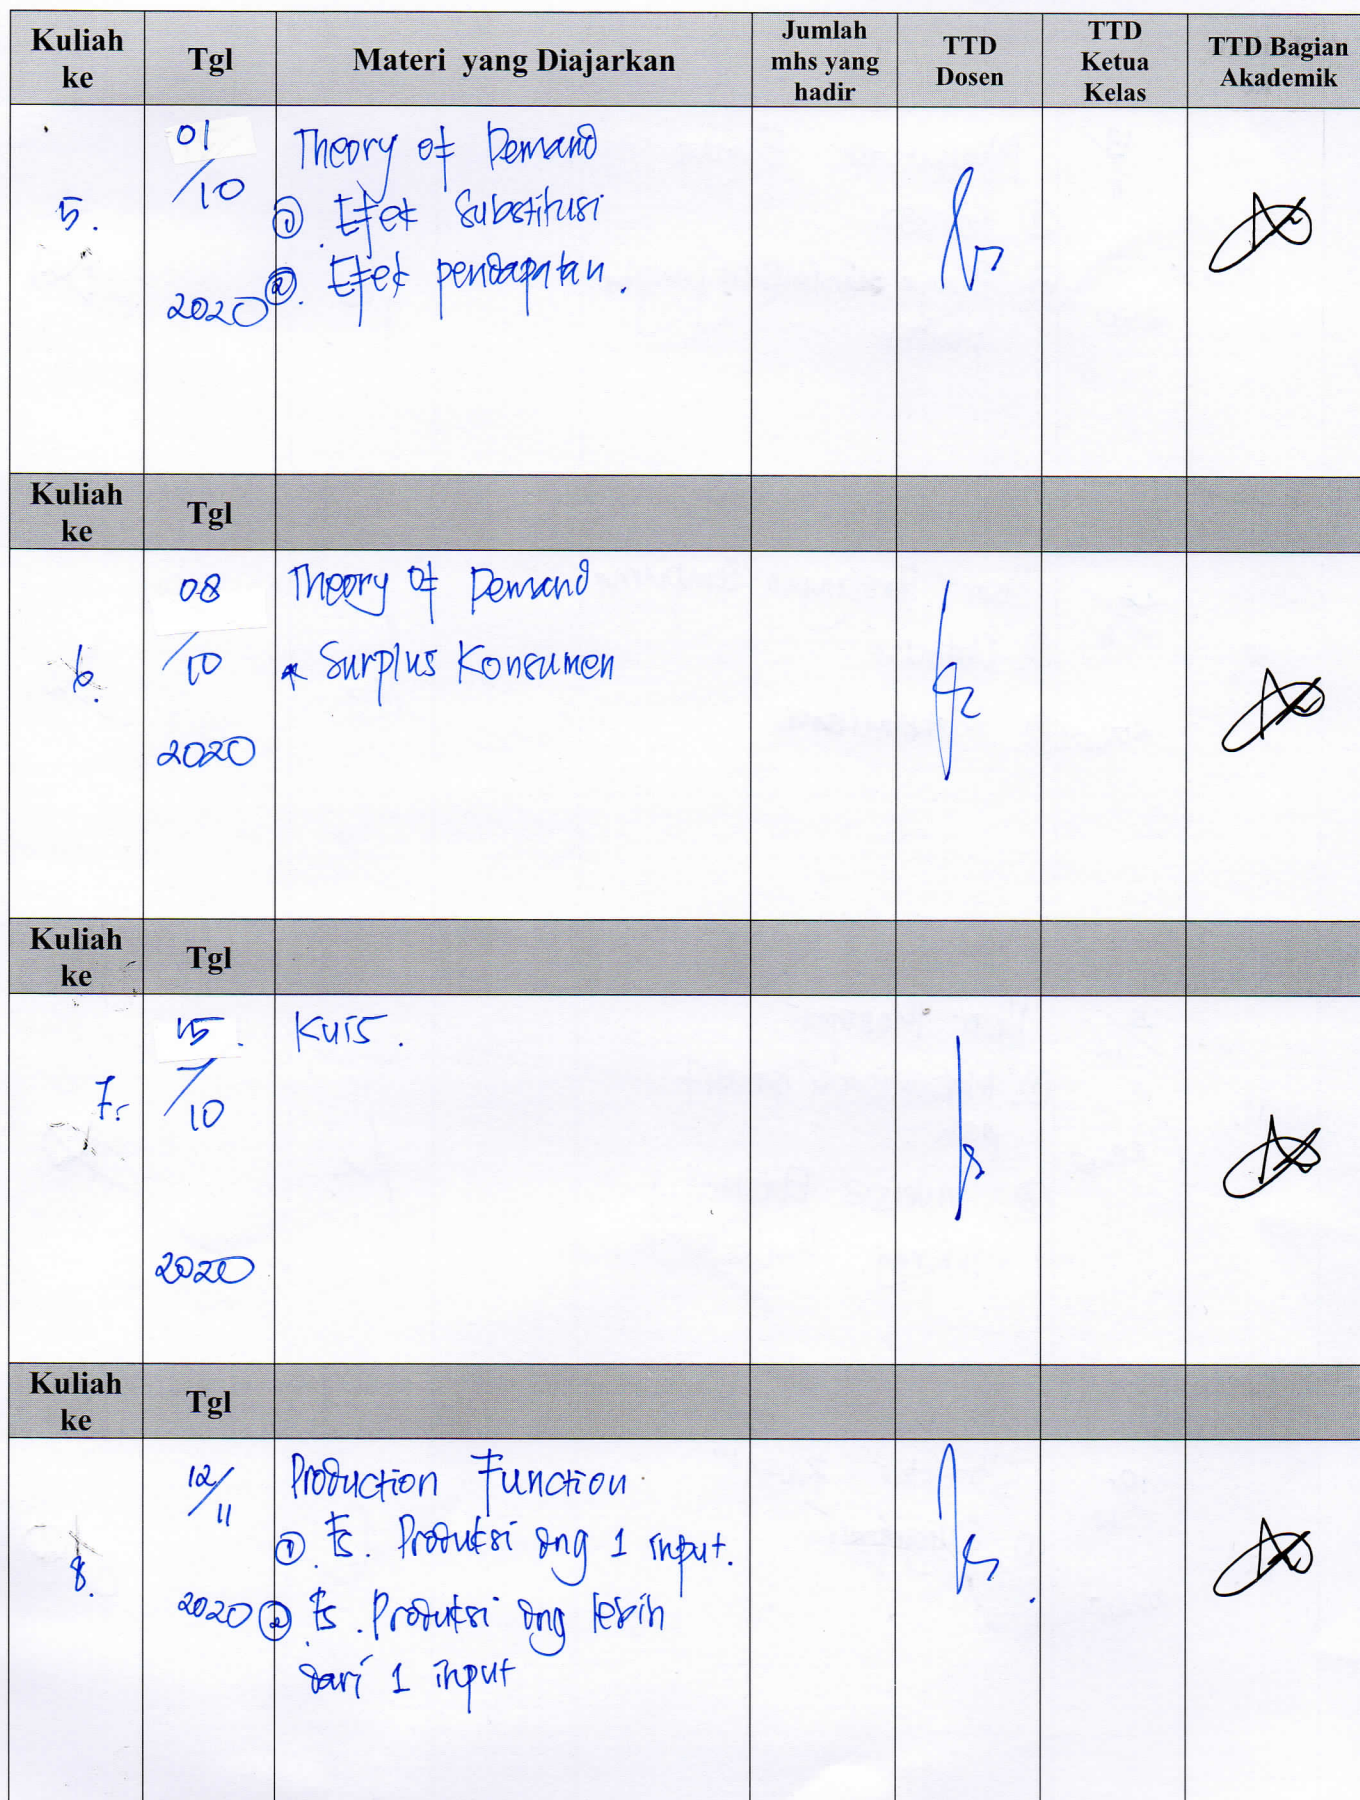 Kuliah ke Tgl Materi yang Diajarkan Jumlah mhs yang hadir TTD Dosen TTD Ketua Kelas TTD Bagian Akademik
5. 01/10 2020 Theory of Demand
① Efek Substitusi
②. Efek pendapatan.
Kuliah ke Tgl
6. 08/10 2020 Theory of Demand
* Surplus Konsumen
Kuliah ke Tgl
7. 15/10 2020 Kuis.
Kuliah ke Tgl
8. 12/11 2020 Production Function
①. Fs. Produksi dng 1 input.
② Fs. Produksi dng lebih
dari 1 input